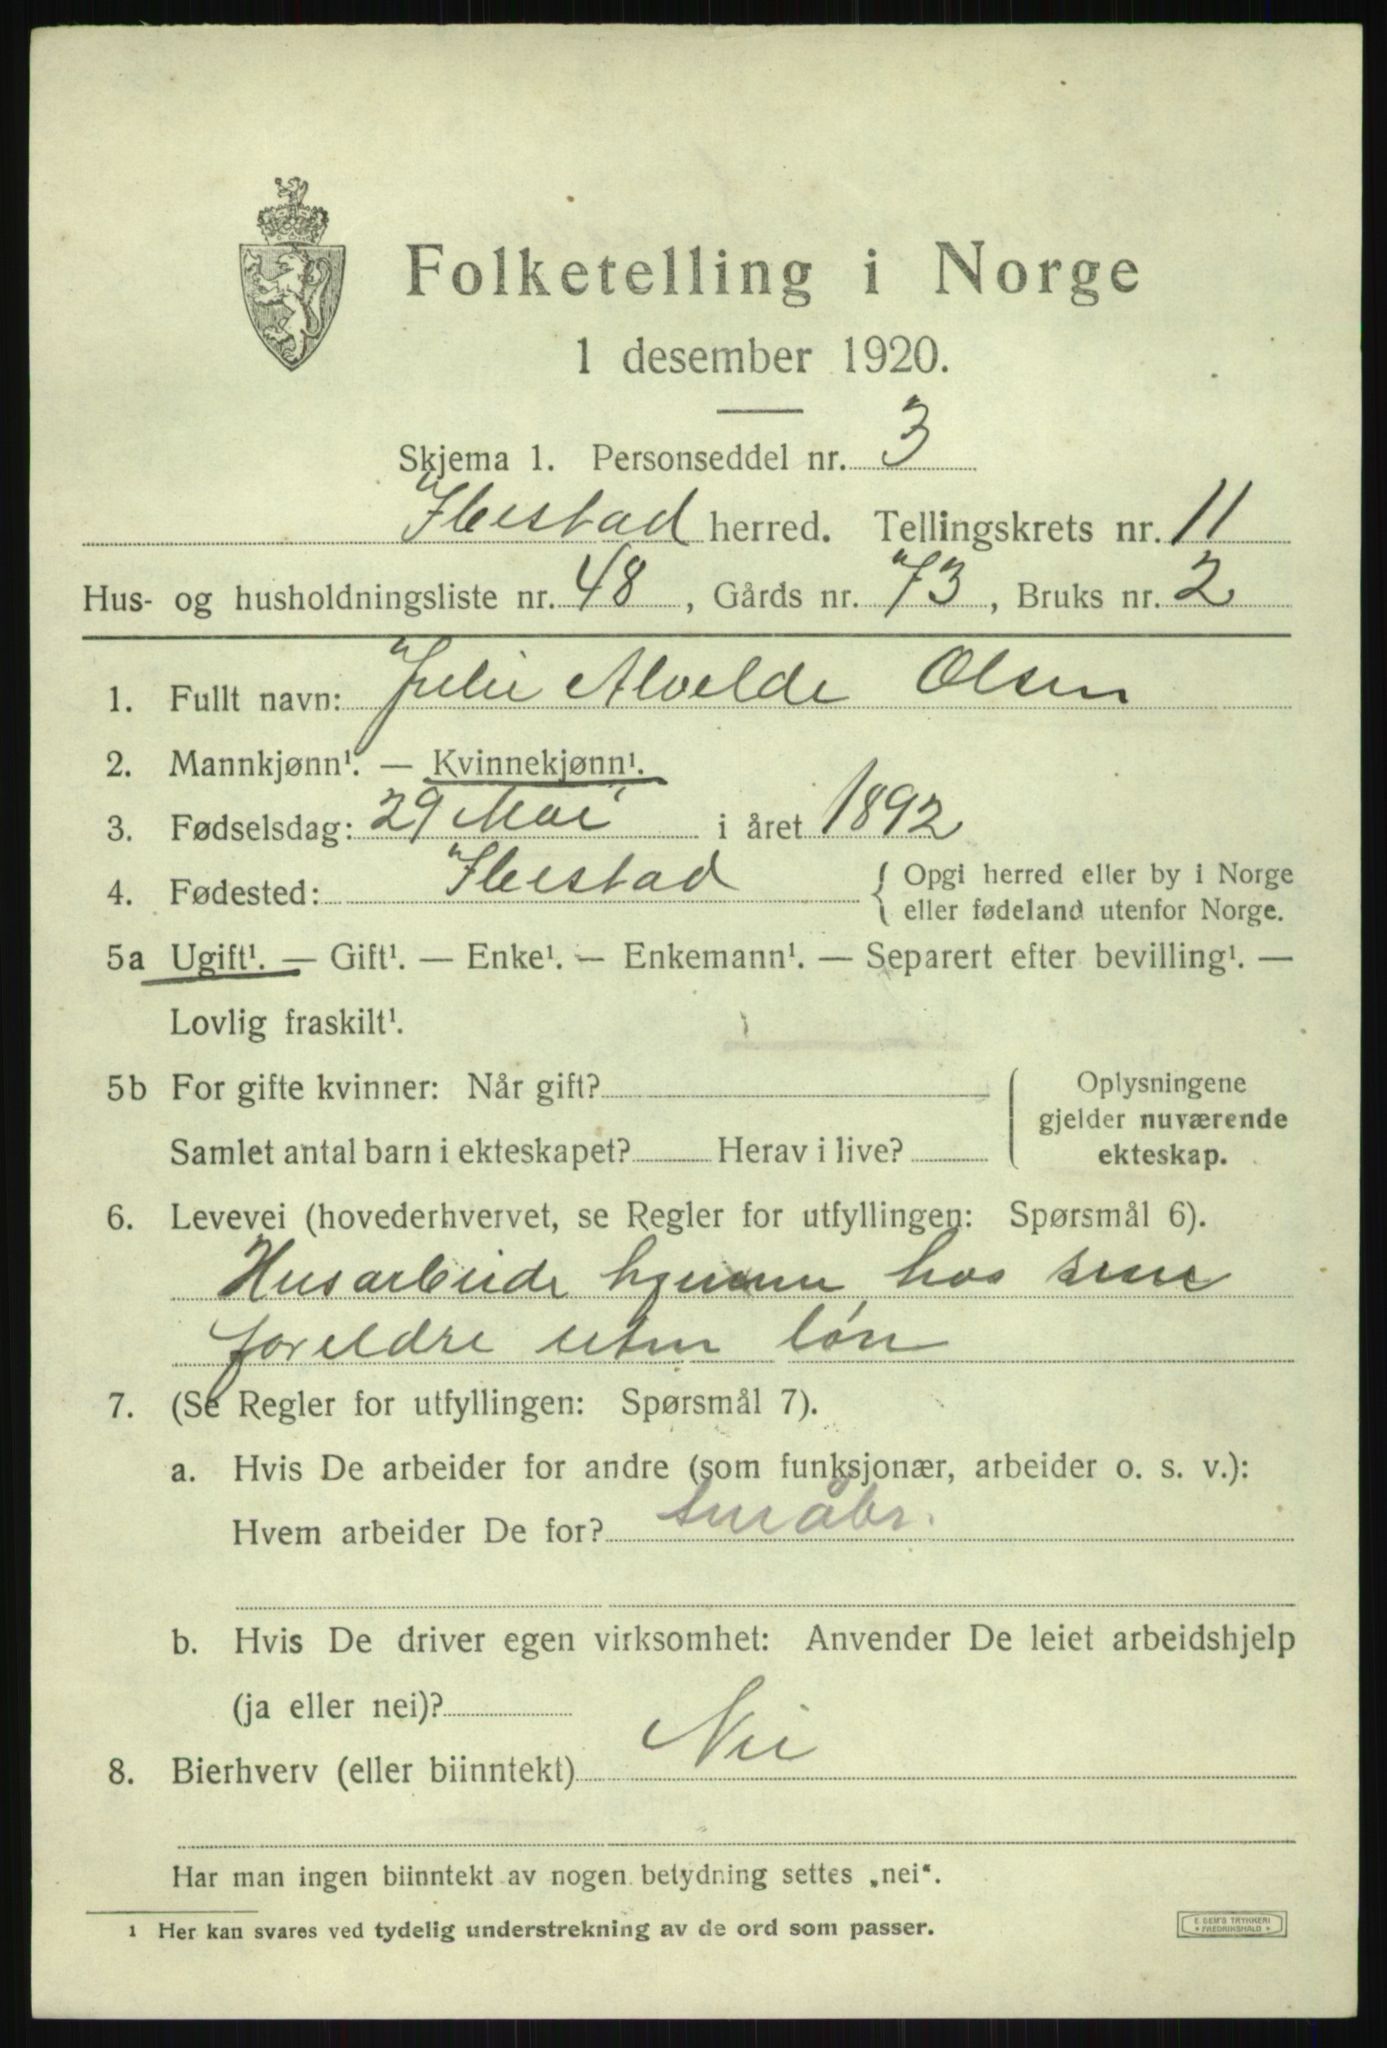 Folketelling i Norge
1 desember 1920.
Skjema 1. Personseddel nr. 3
Ibestad herred. Tellingskrets nr. 11
Hus- og husholdningsliste nr. 48, Gårds nr. 73, Bruks nr. 2
1. Fullt navn: Julie Alvilde Olsen
2. Mannkjønn¹. — Kvinnekjønn¹.
3. Fødselsdag: 29 Mai i året 1892
4. Fødested: Ibestad { Opgi herred eller by i Norge
eller fødeland utenfor Norge.
5a Ugift¹. — Gift¹. — Enke¹. — Enkemann¹. — Separert efter bevilling¹. —
Lovlig fraskilt¹.
5b For gifte kvinner: Når gift?
Samlet antal barn i ekteskapet? Herav i live?
Oplysningene
gjelder nuværende
ekteskap.
6. Levevei (hovederhvervet, se Regler for utfyllingen: Spørsmål 6).
Husarbeide hjemme hos sine
foreldre uten løn
7. (Se Regler for utfyllingen: Spørsmål 7).
a. Hvis De arbeider for andre (som funksjonær, arbeider o. s. v.):
Hvem arbeider De for? småbr.
b. Hvis De driver egen virksomhet: Anvender De leiet arbeidshjelp
(ja eller nei)?
8. Bierhverv (eller biinntekt) Nei
Har man ingen biinntekt av nogen betydning settes „nei“.
1 Her kan svares ved tydelig understrekning av de ord som passer.
E. SEM'S TRYKKERI
* FREDRIKSHALD *